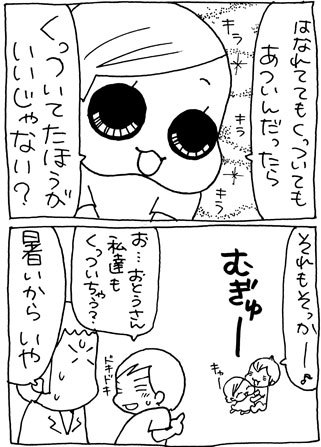 はなれててもくっついても
あついんだったら
キラ
キラ
キラ
くっついてたほうが
いいじゃない？
それもそっかー♪
むぎゅー
きゃー
お…おとうさん
私達も
くっついちゃう？
ドキドキ
暑いからいや